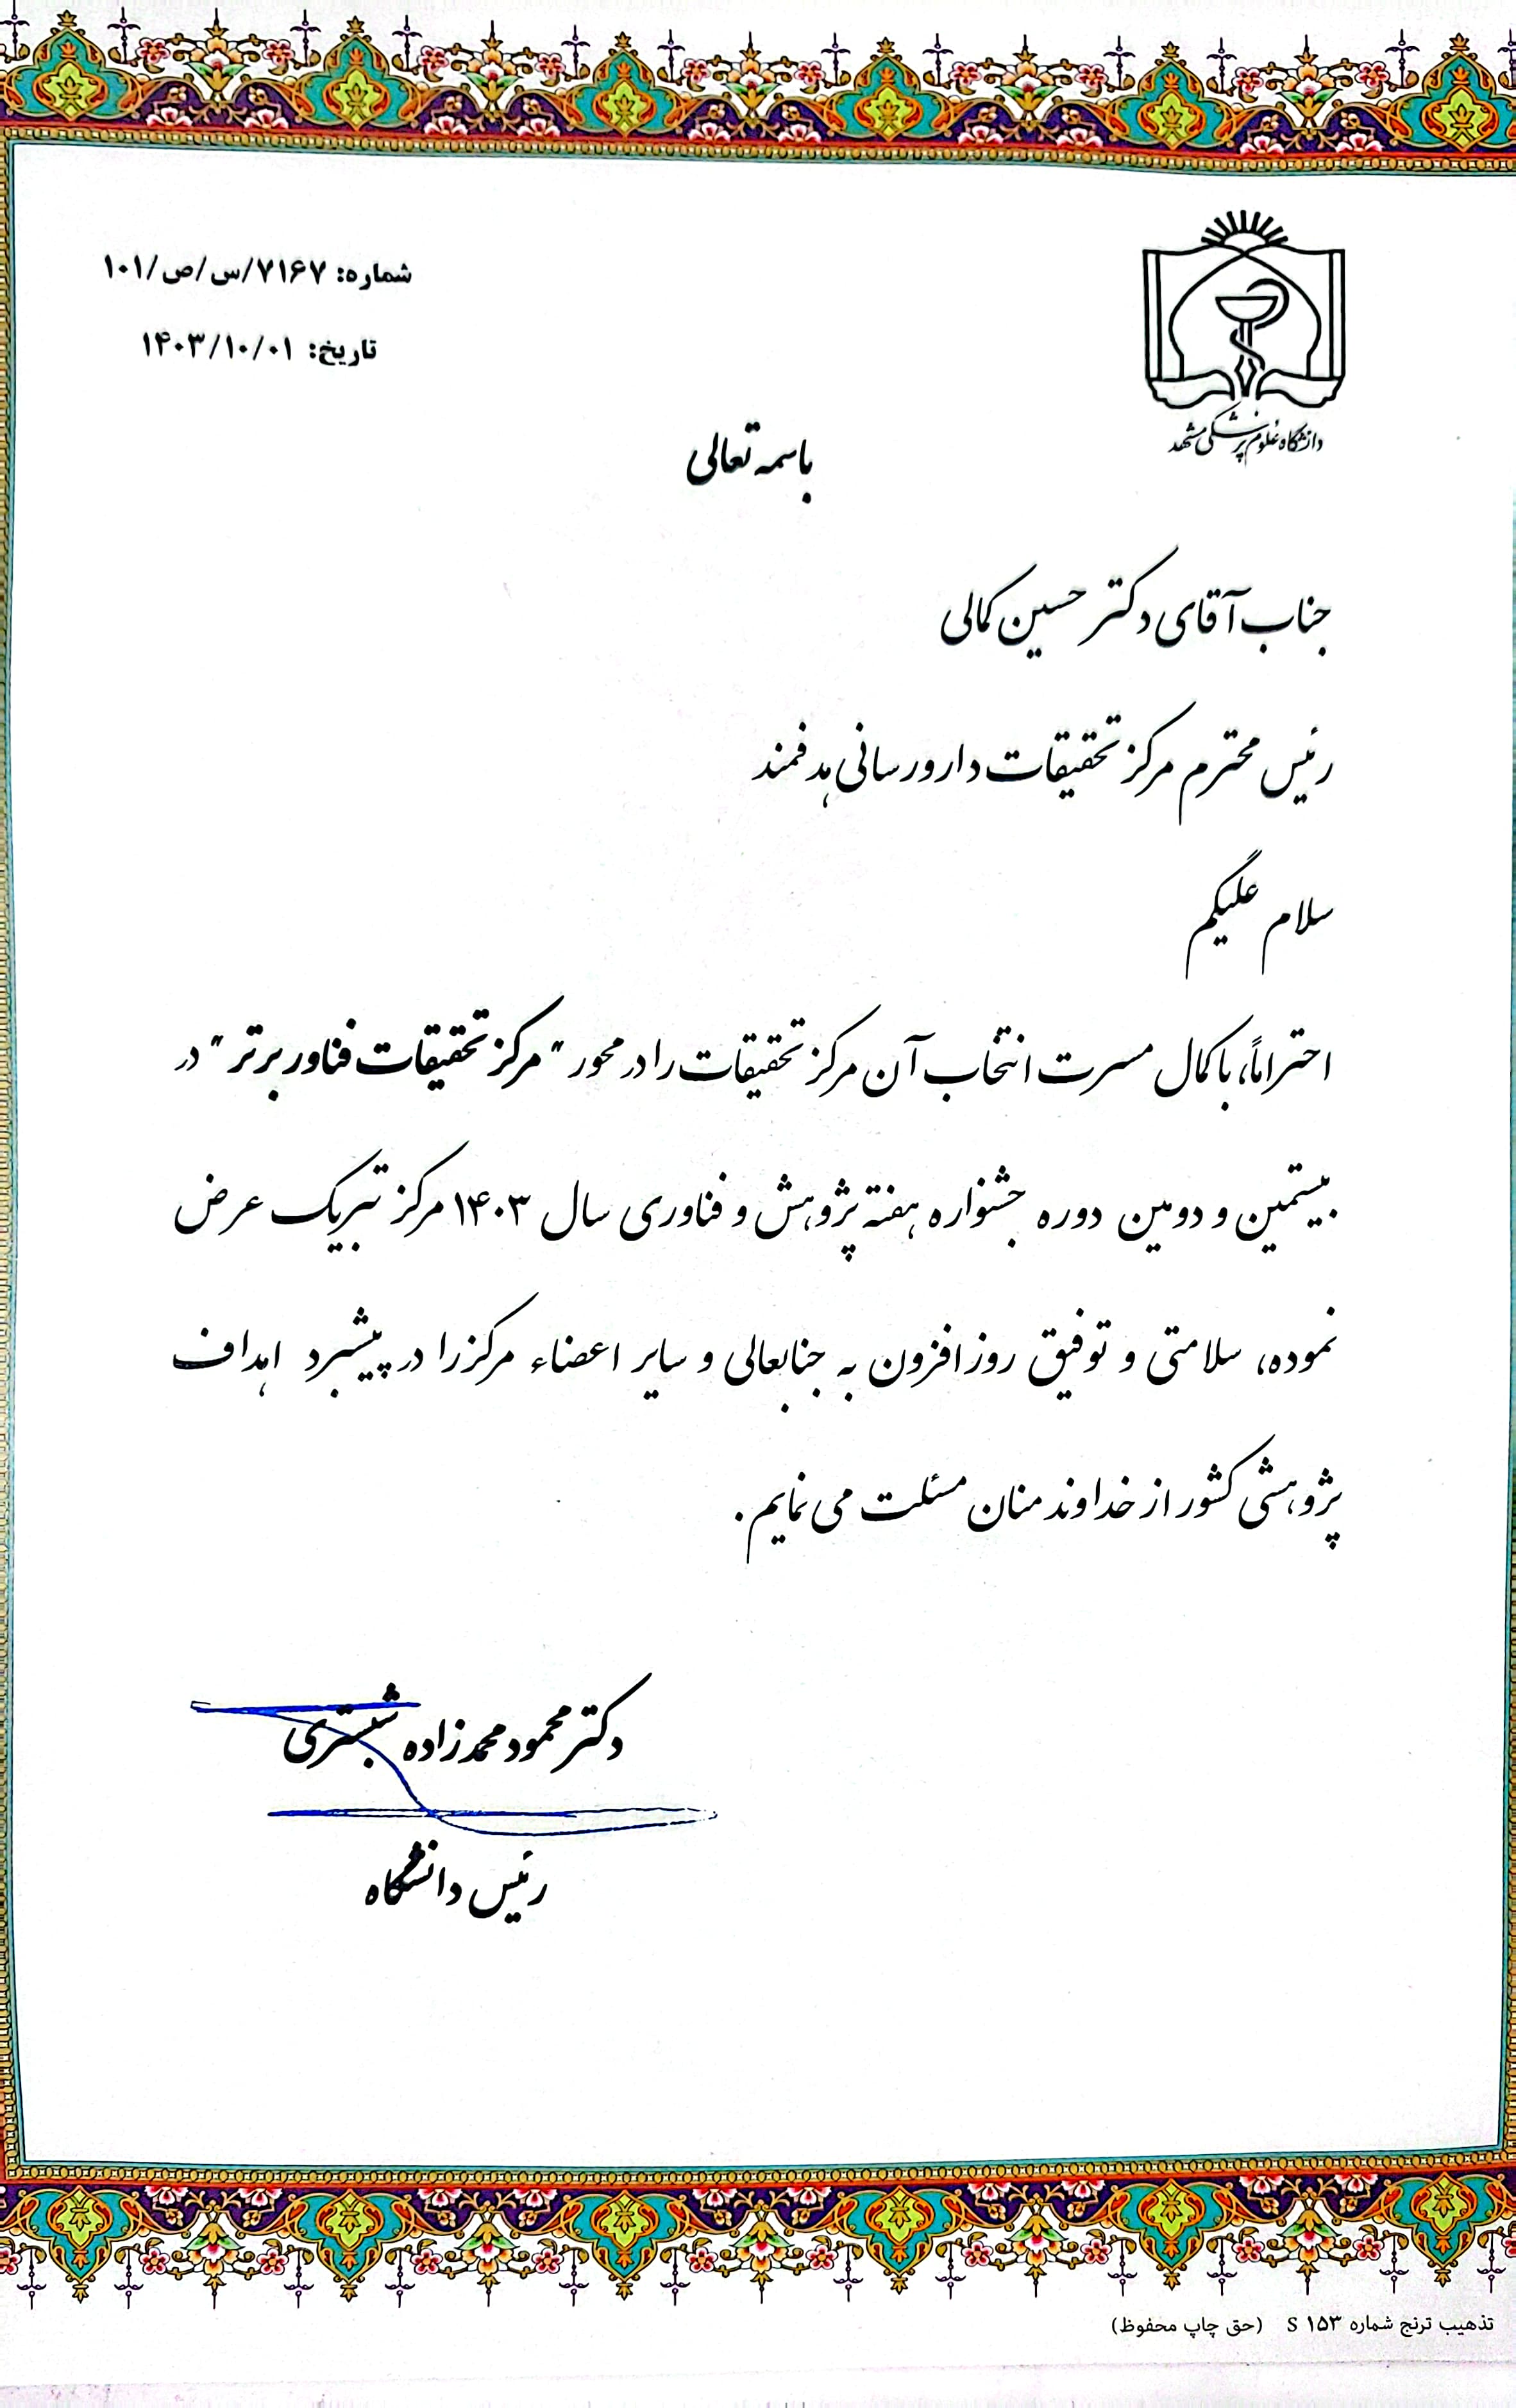 شماره: ۷۱۶۷/س/ص/۱۰۱
تاریخ: ۱۴۰۳/۱۰/۰۱
دانشگاه علوم پزشکی مشهد
باسمه تعالی
جناب آقای دکتر حسین کمالی
رئیس محترم مرکز تحقیقات دارورسانی هدفمند
سلام علیکم
احتراماً، با کمال مسرت انتخاب آن مرکز تحقیقات را در محور "مرکز تحقیقات فناور برتر" در
بیستمین و دومین دوره جشنواره هفته پژوهش و فناوری سال ۱۴۰۳ مرکز تبریک عرض
نموده، سلامتی و توفیق روزافزون به جنابعالی و سایر اعضاء مرکز را در پیشبرد اهداف
پژوهشی کشور از خداوند منان مسئلت می نمایم.
دکتر محمود محمدزاده شبستری
رئیس دانشگاه
تذهیب ترنج شماره S ۱۵۳ (حق چاپ محفوظ)